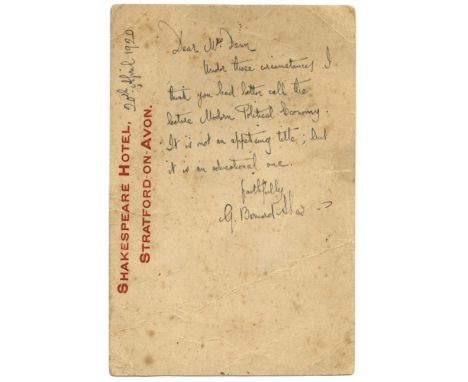 SHAKESPEARE HOTEL,
STRATFORD-ON-AVON.
20th April 1920
Dear Mrs
Under those circumstances I
think you had better call the
lecture Modern Political Economy.
It is not an appetizing title; but
it is an educational one.
faithfully
G. Bernard Shaw